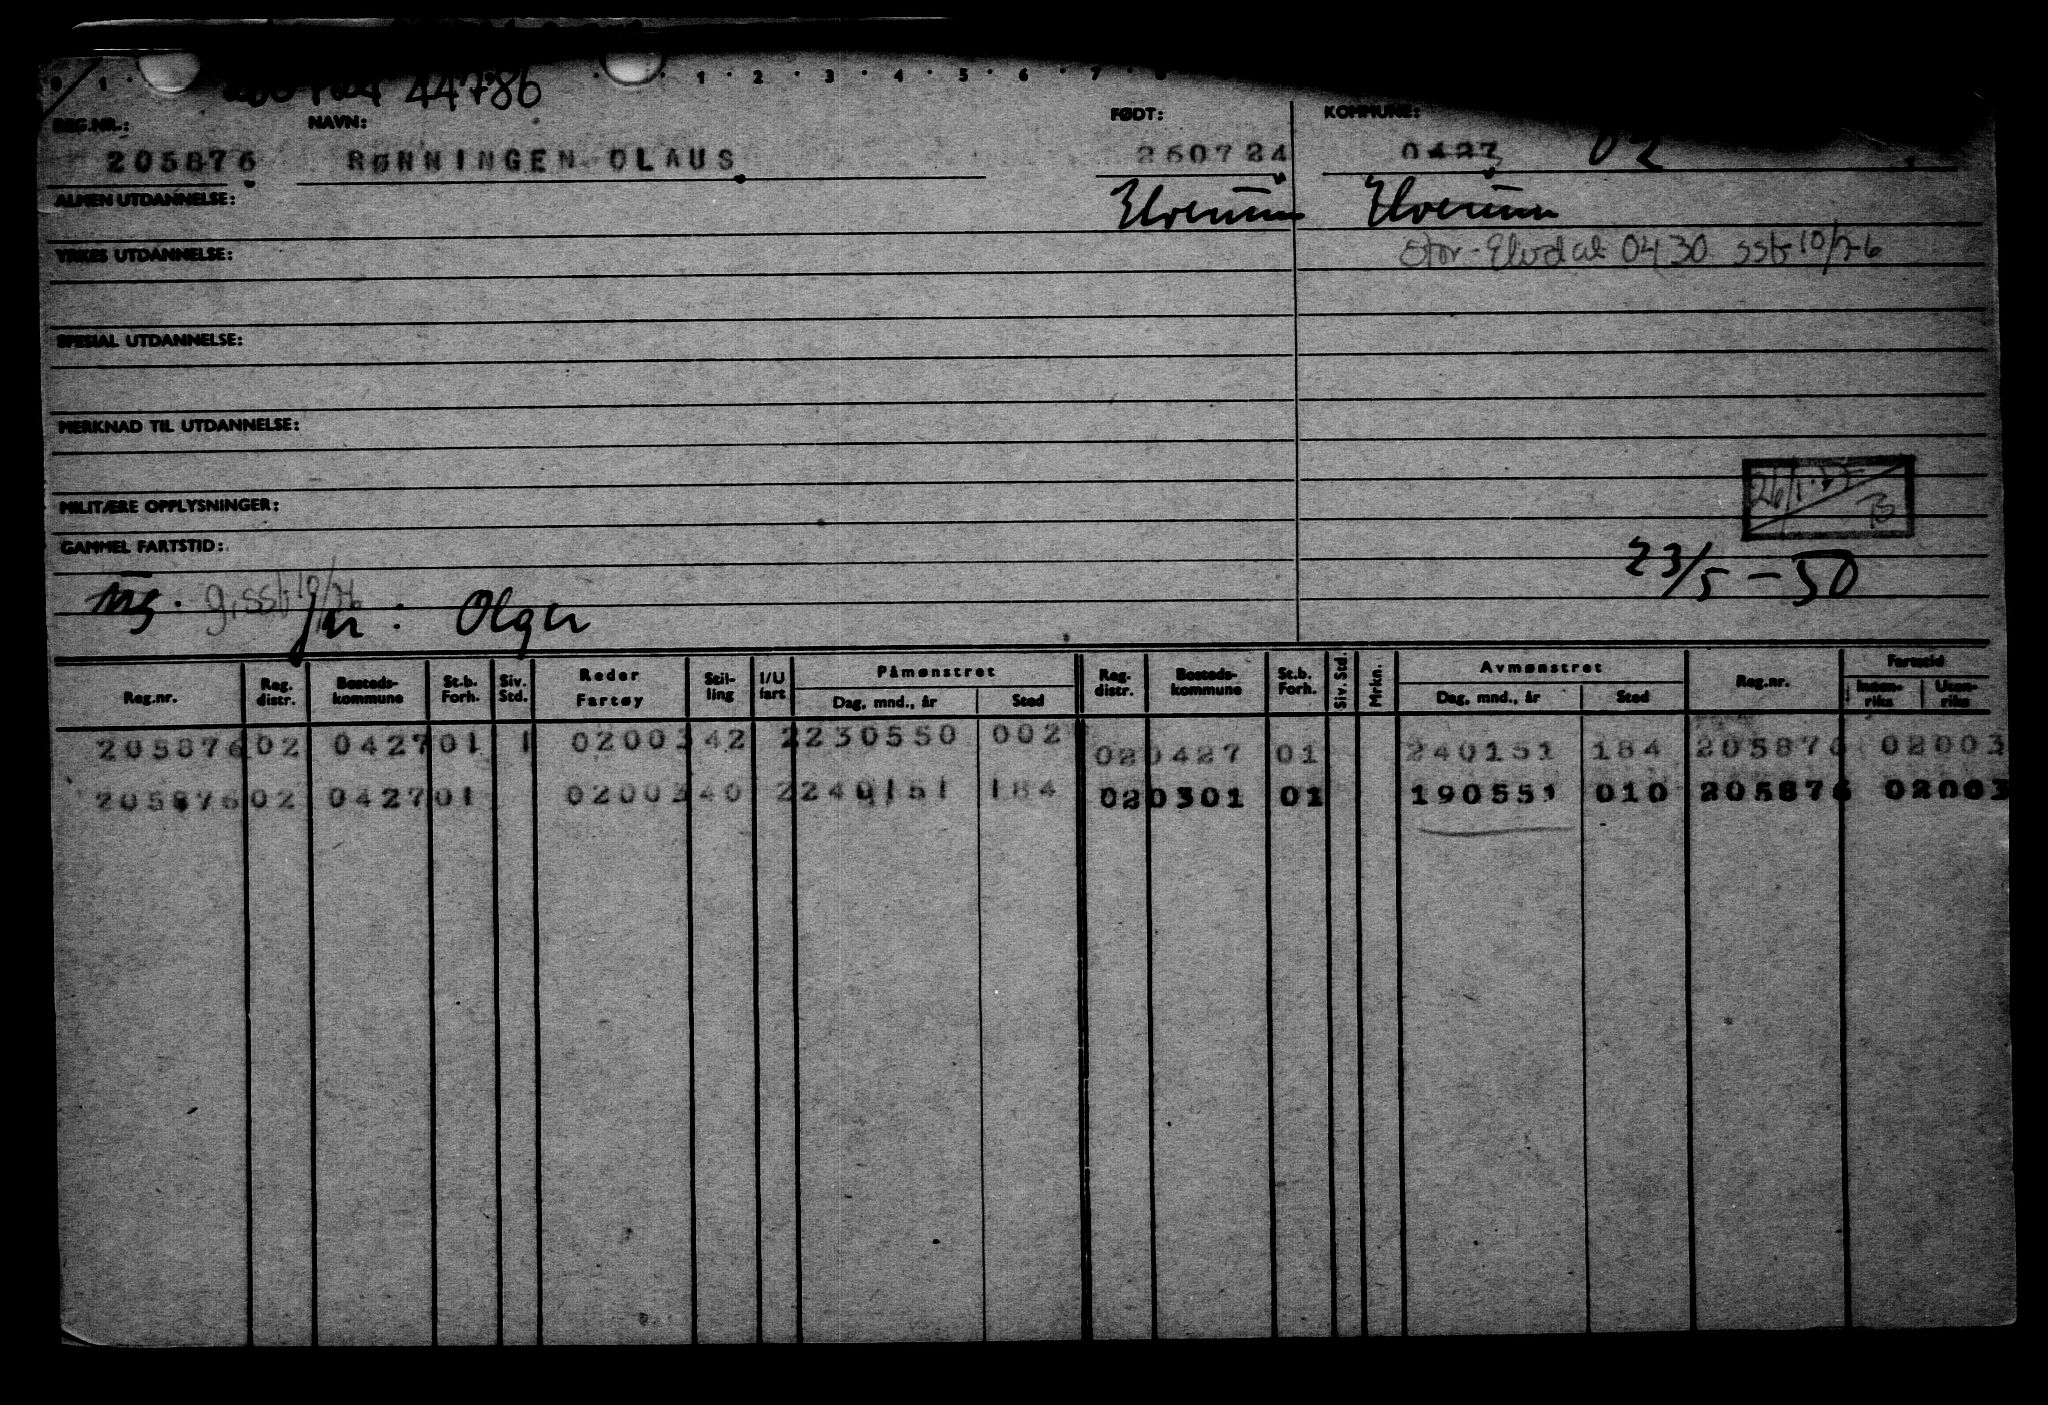 0 1 1 2 3 4 5 6 7
44786
REG.NR.: NAVN: FØDT: KOMMUNE:
205876 RØNNINGEN OLAUS 260724 0427 02
ALMEN UTDANNELSE: Elverum Elverum
YRKES UTDANNELSE: Stor-Elvdal 0430 sst 10/2-6
SPESIAL UTDANNELSE:
MERKNAD TIL UTDANNELSE:
MILITÆRE OPPLYSNINGER:
GAMMEL FARTSTID:
23/5-50
ug. g.sst 10/2-6
far: Olger
Reg.nr. Reg. distr. Bosteds-kommune St.b. Forh. Siv. Std. Reder Fartøy Stil-ling I/U fart Påmønstret Dag, mnd., år Sted Reg. distr. Bosteds-kommune St.b. Forh. Siv. Std. Mrkn. Avmønstret Dag, mnd., år Sted Reg.nr. Fartstid Innen-riks Uten-riks
205876 02 0427 01 1 02003 42 2 230550 002 02 0427 01 240151 184 205876 02003
205876 02 0427 01 02003 40 2 240151 184 02 0301 01 190551 010 205876 02003